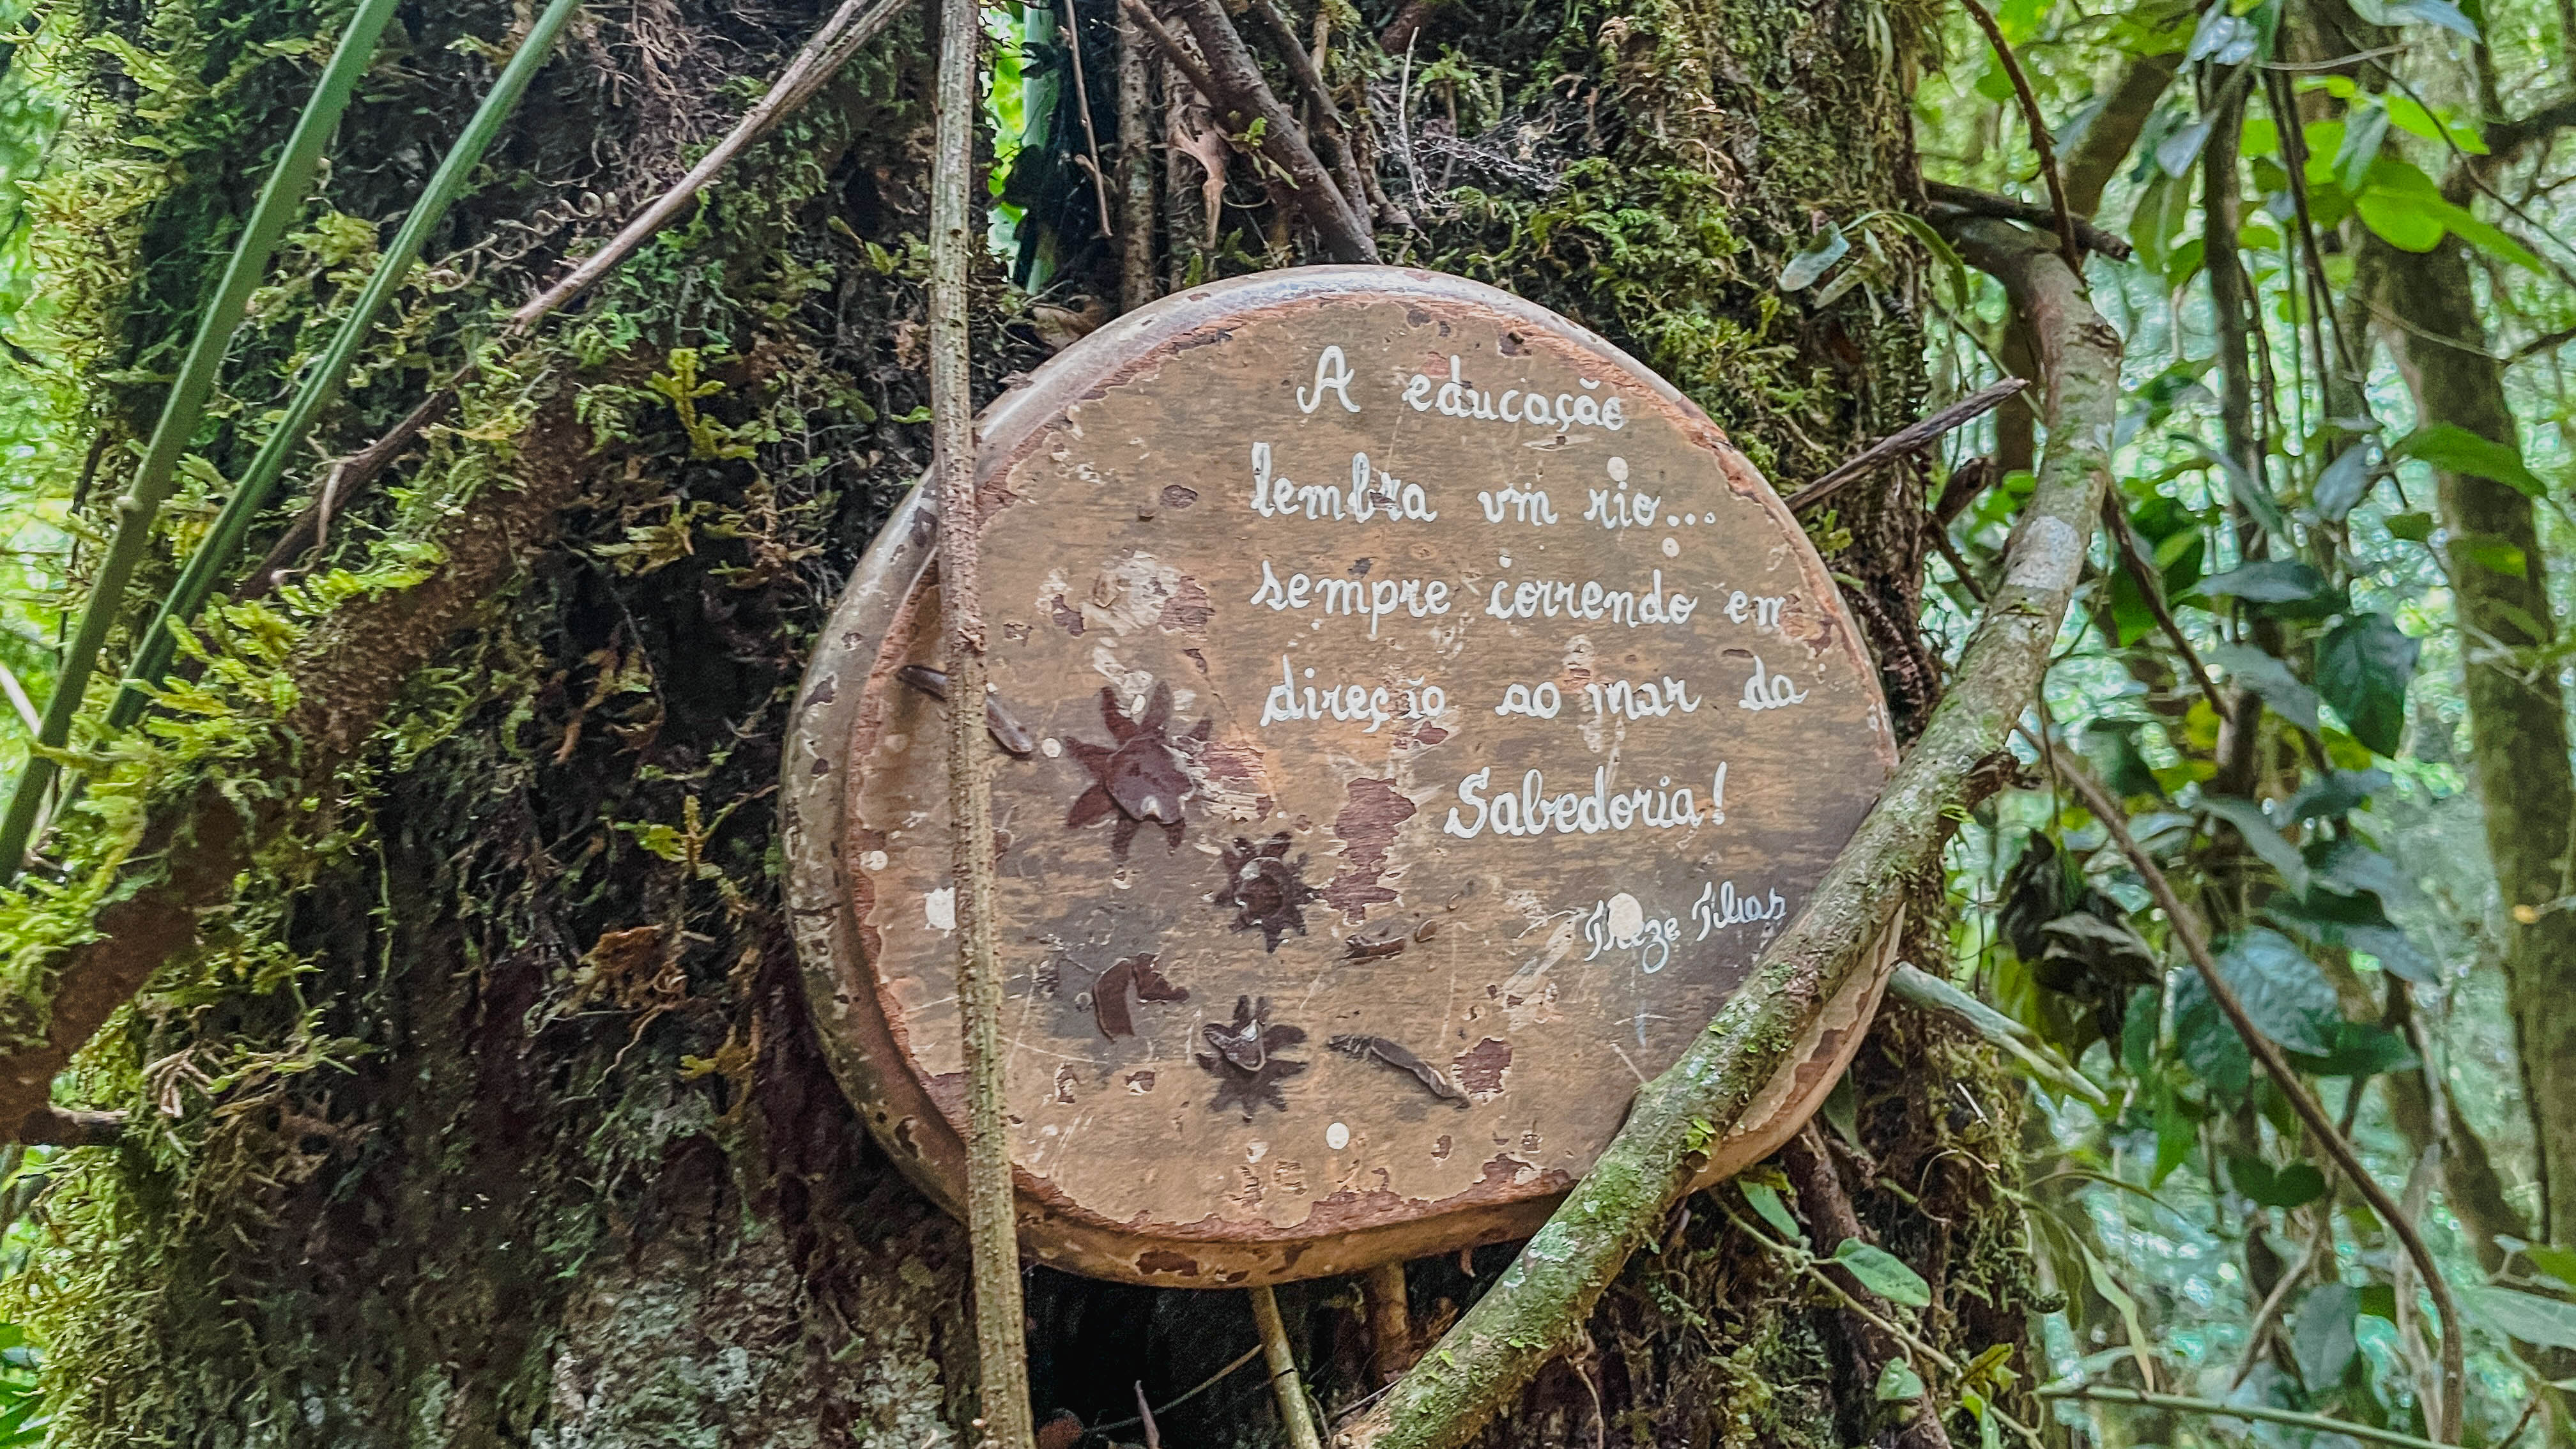 A educação
lembra um rio...
sempre correndo em
direção ao mar da
Sabedoria!